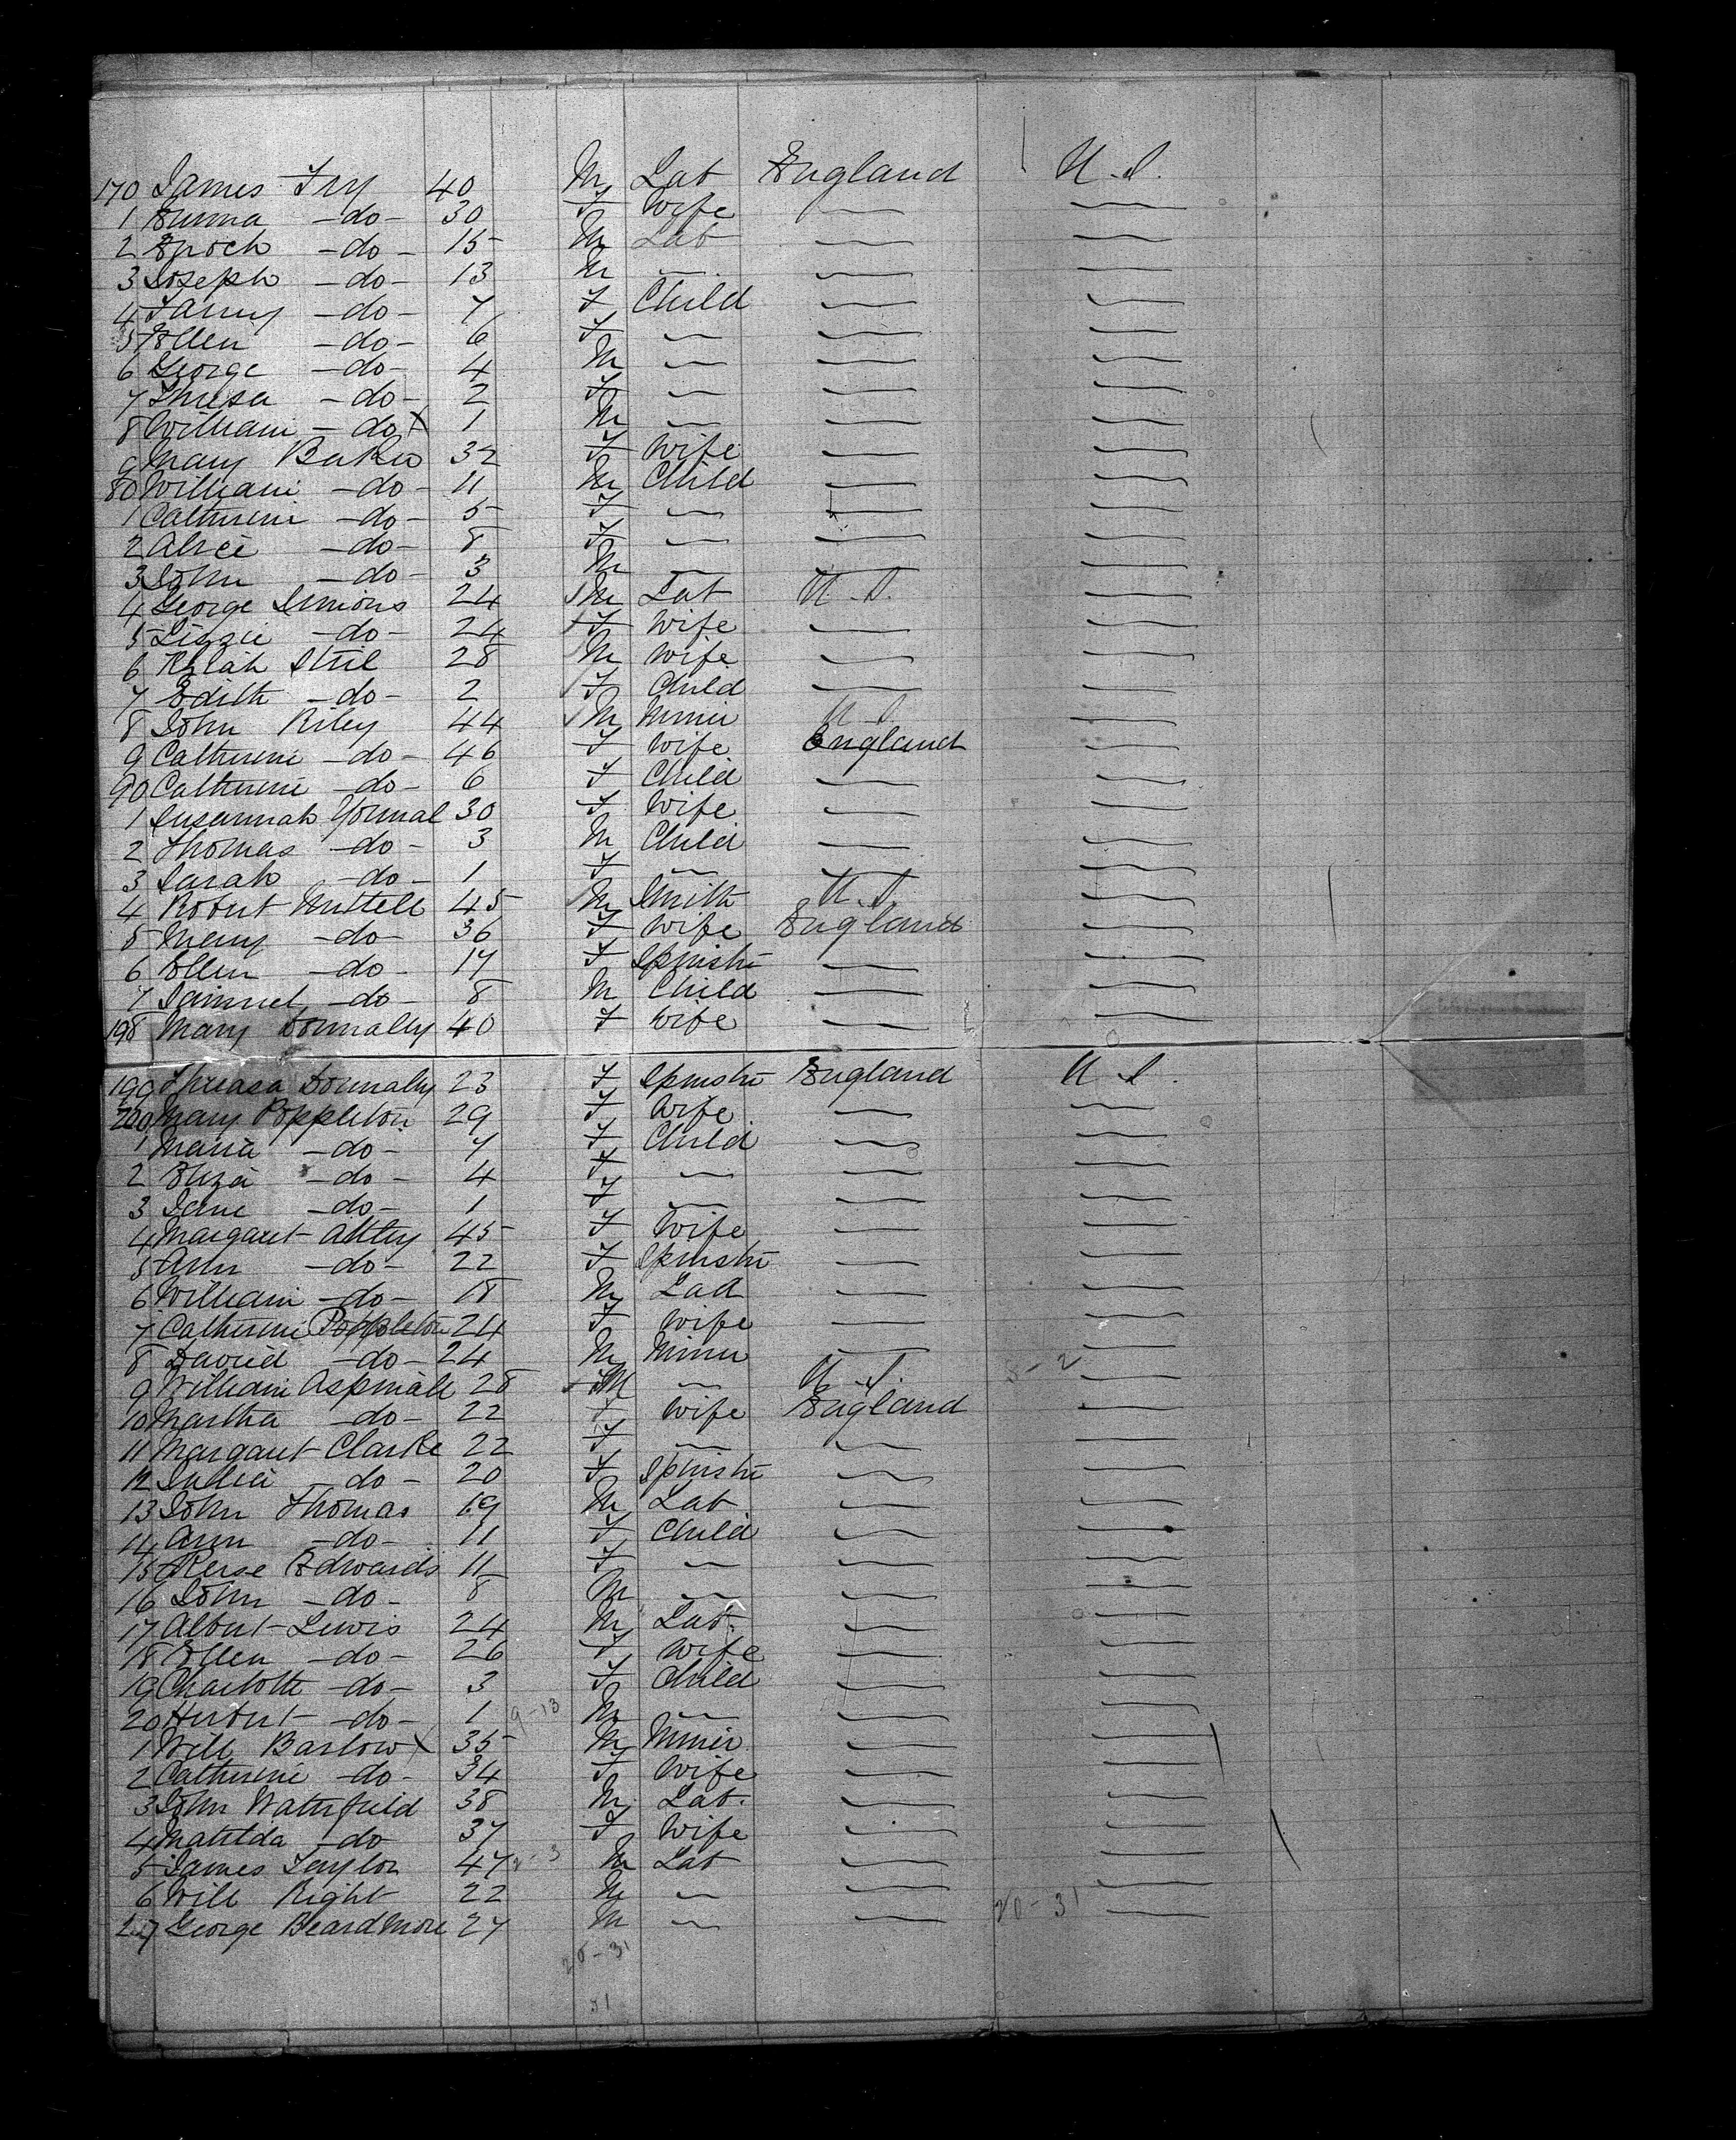 170 James Fry 40 M Lab England U.S.
1 Emma -do- 30 F Wife — —
2 Enoch -do- 15 M Lab — —
3 Joseph -do- 13 M — — —
4 Fanny -do- 7 F Child — —
5 Ellen -do- 6 F — — —
6 George -do- 4 M — — —
7 Thresa -do- 2 F — — —
8 William -do- X 1 M — — —
9 Mary Baker 32 F Wife — —
80 William -do- 11 M Child — —
1 Catherine -do- 5 F — — —
2 Alice -do- 8 F — — —
3 John -do- 3 M — — —
4 George Simions 24 M Lab U.S. —
5 Lizzie -do- 24 F Wife — —
6 28 M Wife — —
7 Edith -do- 2 F Child — —
8 John Riley 44 M Miner U.S. —
9 Catherine -do- 46 F Wife England —
90 Catherine -do- 6 F Child — —
1 Susannah 30 F Wife — —
2 Thomas -do- 3 M Child — —
3 Sarah -do- 1 F — — —
4 Robert Nuttell 45 M Smith U.S. —
5 Mary -do- 36 F Wife England —
6 Ellen -do- 17 F Spinster — —
7 Samuel -do- 8 M Child — —
198 Mary Donnally 40 F Wife — —
199 Threasa Donnally 23 F Spinster England U.S.
200 Mary Poppleton 29 F Wife — —
1 Maria -do- 7 F Child — —
2 Eliza -do- 4 F — — —
3 Jane -do- 1 F — — —
4 Margaret 45 F Wife — —
5 Ann -do- 22 F Spinster — —
6 William -do- 18 M Lad — —
7 Catherine Poppleton 24 F Wife — —
8 David -do- 24 M Miner — —
9 William Aspinall 28 M — U.S. —
10 Martha -do- 22 F Wife England —
11 Margaret Clarke 22 F — — —
12 Julia -do- 20 F Spinster — —
13 John Thomas 19 M Lab — —
14 Ann -do- 11 F Child — —
15 Edwards 11 F — — —
16 John -do- 8 M — — —
17 Albert Lewis 24 M Lab. — —
18 Ellen -do- 26 F Wife — —
19 Charlotte -do- 3 F Child — —
20 Herbert -do- 1 9-13 M — — —
1 Will Barlow X 35 M Miner — —
2 Catherine -do- 34 F Wife — —
3 John Waterfield 38 M Lab. — —
4 Matilda -do- 37 F Wife — —
5 James Taylor 47 M Lab — —
6 Will Right 22 M — — —
227 George Beardmore 27 M — — 20-31 —
20-31
31